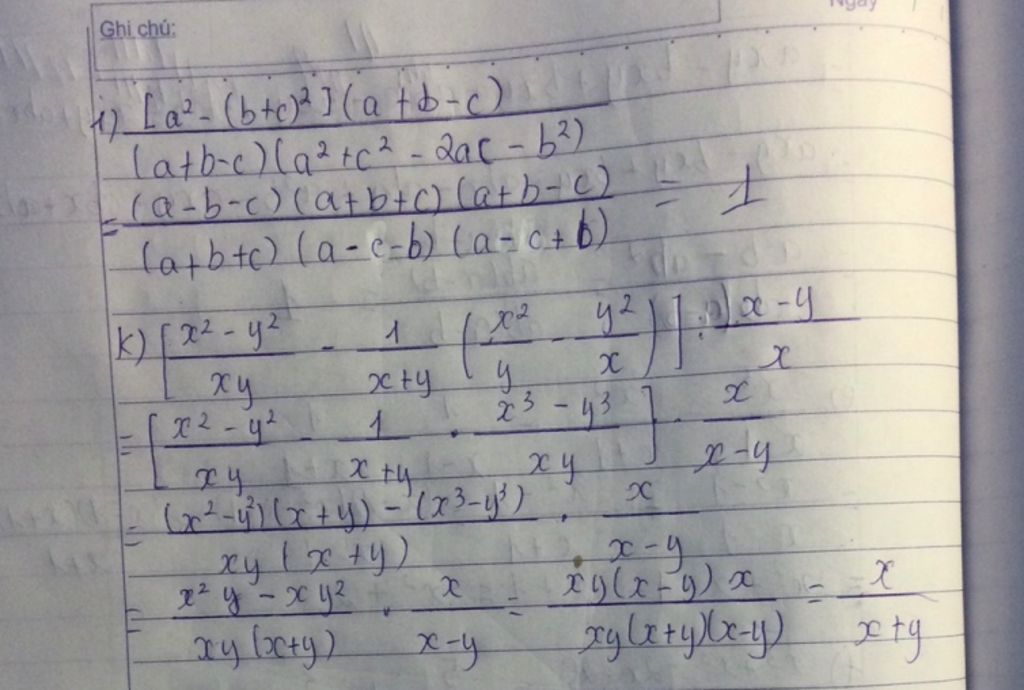 Ghi chú:
Ngày
i) [a² - (b+c)²](a+b-c)
(a+b-c)(a²+c² - 2ac - b²)
= (a-b-c)(a+b+c)(a+b-c) = 1
(a+b+c)(a-c-b)(a-c+b)
k) [x² - y² / xy - 1 / x+y (x² / y - y² / x)] : x-y / x
= [x² - y² / xy - 1 / x+y . x³ - y³ / xy] . x / x-y
= (x²-y²)(x+y) - (x³-y³) / xy(x+y) . x / x-y
= x²y - xy² / xy(x+y) . x / x-y = xy(x-y)x / xy(x+y)(x-y) = x / x+y